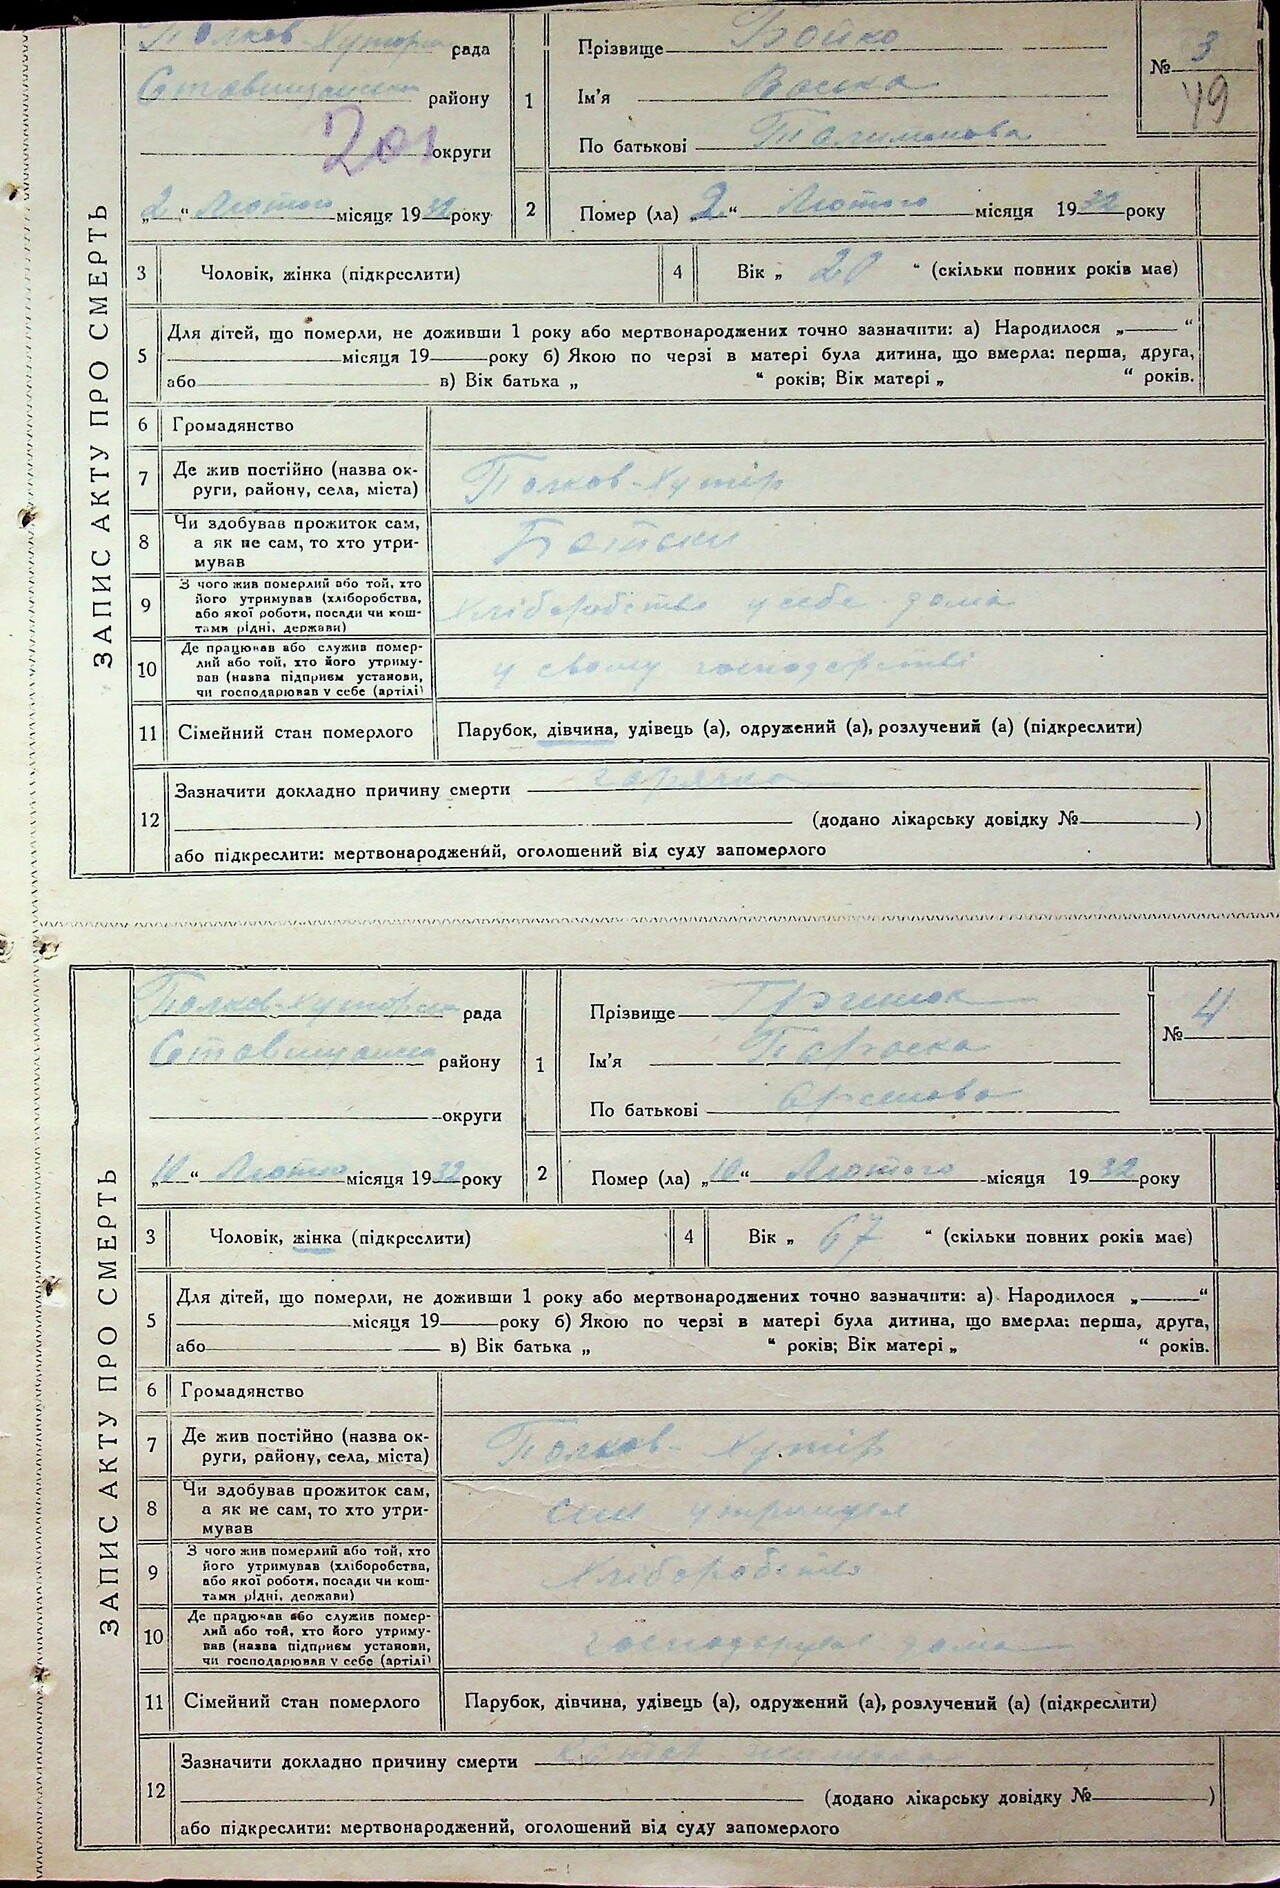 ЗАПИС АКТУ ПРО СМЕРТЬ
Полков-Хутор рада
Ставищанськ району
201
округи
„2“ Лютого місяця 1932 року
1
Прізвище Бойко
Ім'я
По батькові
№ 3
49
2
Помер (ла) „2“ Лютого місяця 1932 року
3 Чоловік, жінка (підкреслити)
4 Вік „20“ (скільки повних років має)
5
Для дітей, що померли, не доживши 1 року або мертвонароджених точно зазначити: а) Народилося „ “
місяця 19 року б) Якою по черзі в матері була дитина, що вмерла: перша, друга,
або в) Вік батька „ “ років; Вік матері „ “ років.
6 Громадянство
7 Де жив постійно (назва ок-
руги, району, села, міста)
Полков-Хутір
8 Чи здобував прожиток сам,
а як не сам, то хто утри-
мував
Батьки
9 З чого жив померлий або той, хто
його утримував (хліборобства,
або якої роботи, посади чи кош-
тами рідні, держави)
хліборобство у себе дома
10 Де працював або служив помер-
лий або той, хто його утриму-
вав (назва підприєм установи,
чи господарював у себе (артілі)
у своему господарстві
11 Сімейний стан померлого
Парубок, дівчина, удівець (а), одружений (а), розлучений (а) (підкреслити)
12
Зазначити докладно причину смерти горячка
(додано лікарську довідку № )
або підкреслити: мертвонароджений, оголошений від суду запомерлого
ЗАПИС АКТУ ПРО СМЕРТЬ
Полков-Хутор рада
Ставищанськ району
округи
„10“ місяця 1932 року
1
Прізвище
Ім'я Параска
По батькові
№ 4
2
Помер (ла) „10“ Лютого місяця 1932 року
3 Чоловік, жінка (підкреслити)
4 Вік „67“ (скільки повних років має)
5
Для дітей, що померли, не доживши 1 року або мертвонароджених точно зазначити: а) Народилося „ “
місяця 19 року б) Якою по черзі в матері була дитина, що вмерла: перша, друга,
або в) Вік батька „ “ років; Вік матері „ “ років.
6 Громадянство
7 Де жив постійно (назва ок-
руги, району, села, міста)
Полков-Хутір
8 Чи здобував прожиток сам,
а як не сам, то хто утри-
мував
син
9 З чого жив померлий або той, хто
його утримував (хліборобства,
або якої роботи, посади чи кош-
тами рідні, держави)
хліборобство
10 Де працював або служив помер-
лий або той, хто його утриму-
вав (назва підприєм установи,
чи господарював у себе (артілі)
господарував дома
11 Сімейний стан померлого
Парубок, дівчина, удівець (а), одружений (а), розлучений (а) (підкреслити)
12
Зазначити докладно причину смерти
(додано лікарську довідку № )
або підкреслити: мертвонароджений, оголошений від суду запомерлого